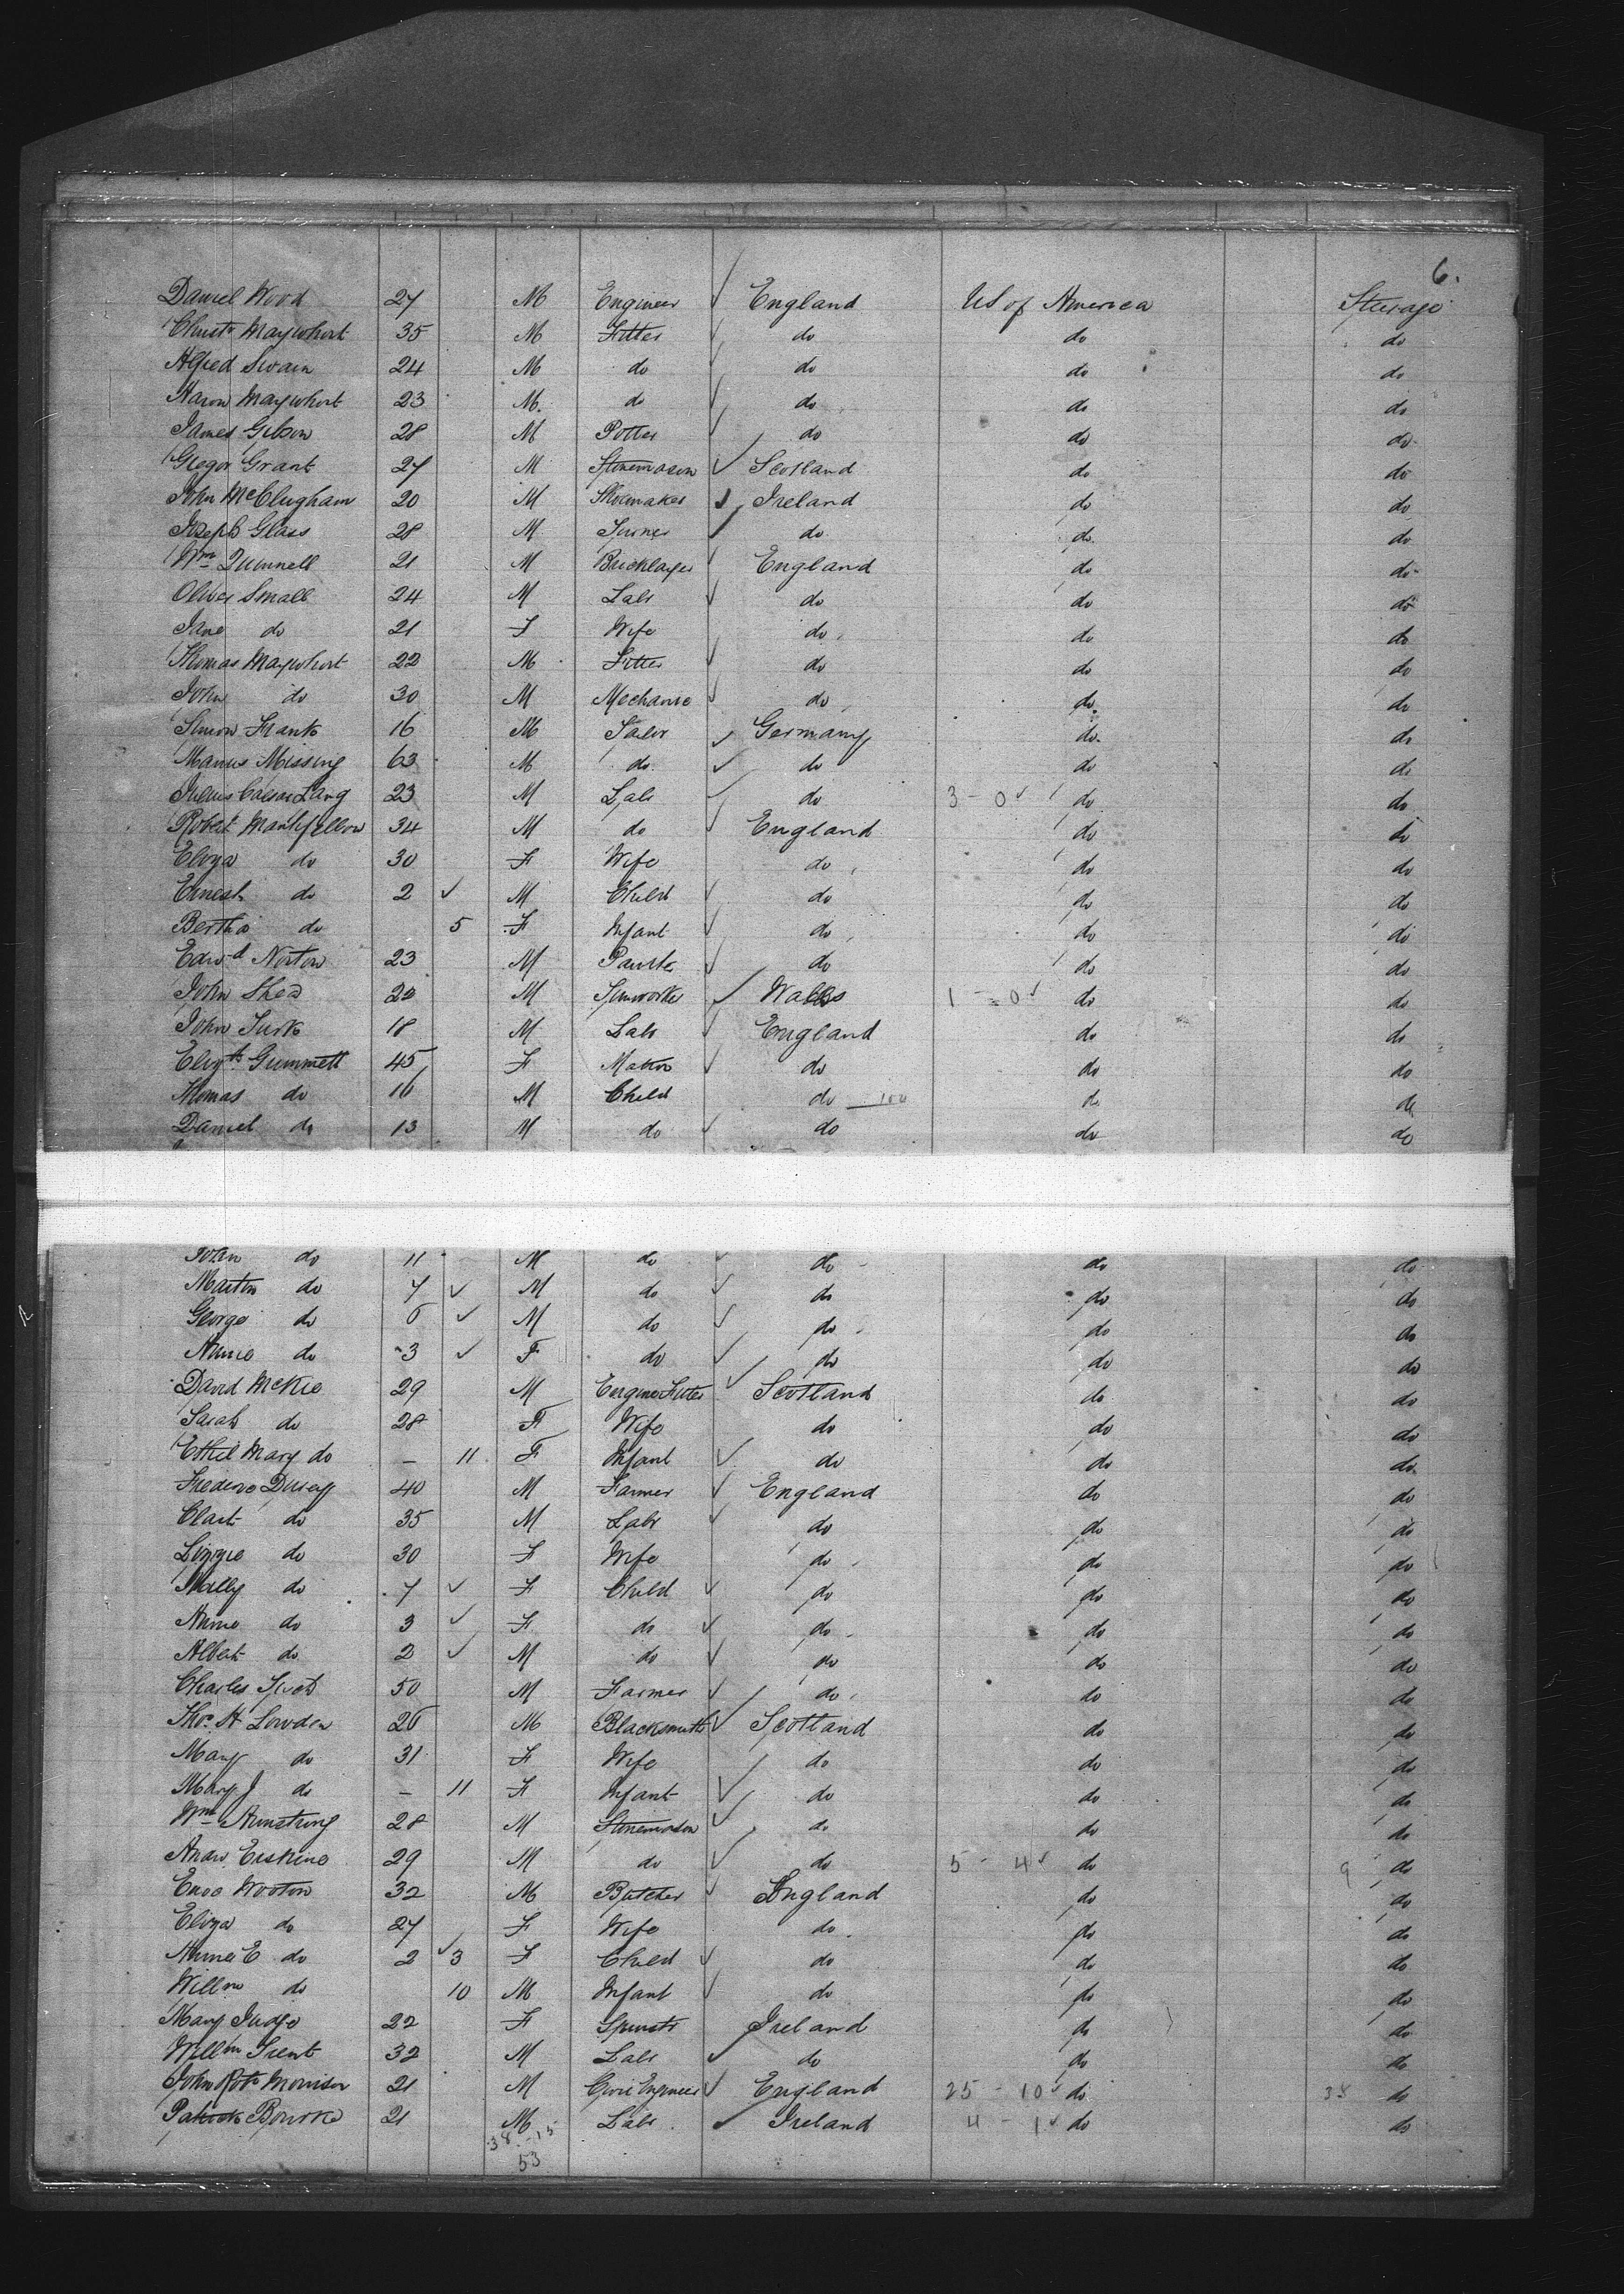 6.
Daniel Wood 27 M Engineer England US of America Steerage
Christr Maywhort 35 M Fitter do do do
Alfred Swain 24 M do do do do
Aaron Maywhort 23 M do do do do
James Gibson 28 M Potter do do do
Gregor Grant 27 M Stonemason Scotland do do
John McClugham 20 M Shoemaker Ireland do do
Joseph Glass 28 M Turner do do do
Wm Qumnell 21 M Bricklayer England do do
Oliver Small 24 M Labr do do do
Jane do 21 F Wife do do do
Thomas Maywhort 22 M Fitter do do do
John do 30 M Mechanic do do do
Simon Frank 16 M Tailr Germany do do
Manus Missing 63 M do do do do
Julius Caesar Lang 23 M Labr do 3 - 0 do do
Robert 34 M do England do do
Eliza do 30 F Wife do do do
Ernest do 2 M Child do do do
Bertha do 5 F Infant do do do
Edwd Norton 23 M do do do
John Shea 22 M Wales 1 - 0 do do
John Turk 18 M Labr England do do
Elizth Gummett 45 F Matron do do do
Thomas do 16 M Child do 100 do do
Daniel do 13 M do do do do
John do 11 M do do do do
Martin do 7 M do do do do
George do 6 M do do do do
Annie do 3 F do do do do
David McKie 29 M Engine Fitter Scotland do do
Sarah do 28 F Wife do do do
Ethel Mary do – 11 F Infant do do do
Frederic 40 M Farmer England do do
do 35 M Labr do do do
Lizzie do 30 F Wife do do do
do 7 F Child do do do
Annie do 3 F do do do do
Albert do 2 M do do do do
Charles 50 M Farmer do do do
Thos H Lowden 26 M Blacksmith Scotland do do
Mary do 31 F Wife do do do
Mary J do – 11 F Infant do do do
Wm Armstrong 28 M Stonemason do do do
Andw Erskine 29 M do do 5 - 4 do 9 do
Enoc Wooton 32 M Butcher England do do
Eliza do 27 F Wife do do do
Annie E do 2 3 F Child do do do
Willm do 10 M Infant do do do
Mary Judge 22 F Spinstr Ireland do do
Willm Trent 32 M Labr do do do
John Robt Morrison 21 M Civil Engineer England 25 - 10 do 38 do
Patrick Bourke 21 M Labr Ireland 4 - 1 do do
38 - 15
53